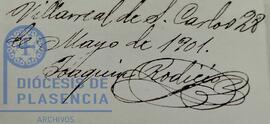 Villarreal de S. Carlos 28
de Mayo de 1901.
Joaquin Rodicio
DIÓCESIS DE
PLASENCIA
ARCHIVOS